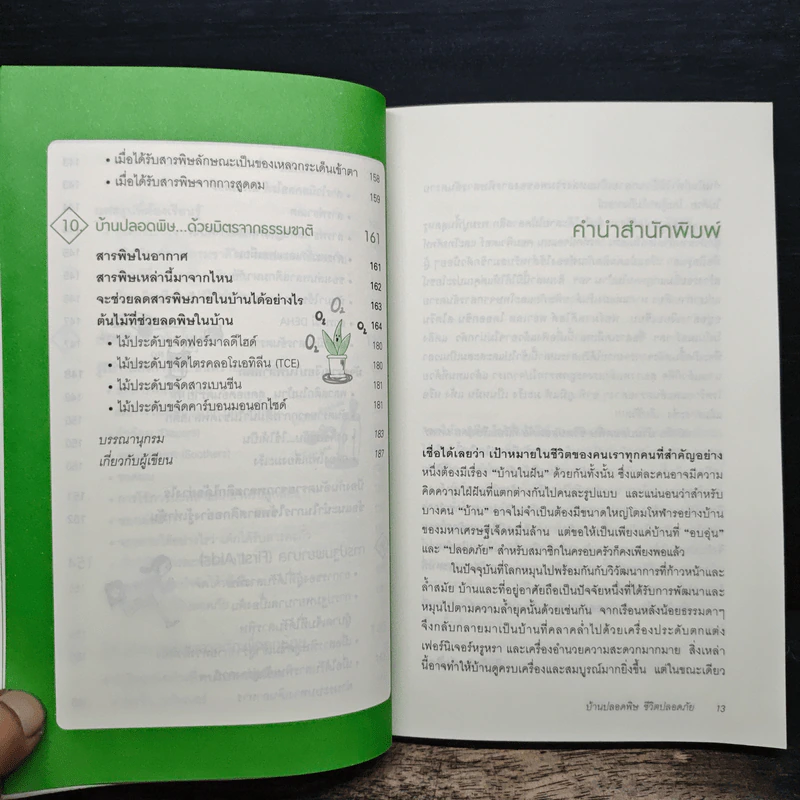 • เมื่อได้รับสารพิษลักษณะเป็นของเหลวกระเด็นเข้าตา 158
• เมื่อได้รับสารพิษจากการสูดดม 159
10 บ้านปลอดพิษ...ด้วยมิตรจากธรรมชาติ 161
สารพิษในอากาศ 161
สารพิษเหล่านี้มาจากไหน 162
จะช่วยลดสารพิษภายในบ้านได้อย่างไร 163
ต้นไม้ที่ช่วยลดพิษในบ้าน 164
• ไม้ประดับขจัดฟอร์มาลดีไฮด์ 180
• ไม้ประดับขจัดไตรคลอโรเอทิลีน (TCE) 180
• ไม้ประดับขจัดสารเบนซีน 181
• ไม้ประดับขจัดคาร์บอนมอนอกไซด์ 181
บรรณานุกรม 183
เกี่ยวกับผู้เขียน 187
O₂ O₂ O₂ O₂
คำนำสำนักพิมพ์
เชื่อได้เลยว่า เป้าหมายในชีวิตของคนเราทุกคนที่สำคัญอย่าง
หนึ่งต้องมีเรื่อง “บ้านในฝัน” ด้วยกันทั้งนั้น ซึ่งแต่ละคนอาจมีความ
คิดความใฝ่ฝันที่แตกต่างกันไปคนละรูปแบบ และแน่นอนว่าสำหรับ
บางคน “บ้าน” อาจไม่จำเป็นต้องมีขนาดใหญ่โตมโหฬารอย่างบ้าน
ของมหาเศรษฐีเจ็ดหมื่นล้าน แต่ขอให้เป็นเพียงแค่บ้านที่ “อบอุ่น”
และ “ปลอดภัย” สำหรับสมาชิกในครอบครัวก็คงเพียงพอแล้ว
ในปัจจุบันที่โลกหมุนไปพร้อมกันกับวิวัฒนาการที่ก้าวหน้าและ
ล้ำสมัย บ้านและที่อยู่อาศัยถือเป็นปัจจัยหนึ่งที่ได้รับการพัฒนาและ
หมุนไปตามความล้ำยุคนั้นด้วยเช่นกัน จากเรือนหลังน้อยธรรมดาๆ
จึงกลับกลายมาเป็นบ้านที่คลาคล่ำไปด้วยเครื่องประดับตกแต่ง
เฟอร์นิเจอร์หรูหรา และเครื่องอำนวยความสะดวกมากมาย สิ่งเหล่า
นี้อาจทำให้บ้านดูครบเครื่องและสมบูรณ์มากยิ่งขึ้น แต่ในขณะเดียว
บ้านปลอดพิษ ชีวิตปลอดภัย 13